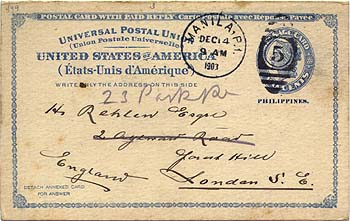 POSTAL CARD WITH PAID REPLY. Carte postale avec Réponse Payée.
UNIVERSAL POSTAL UNION
(Union Postale Universelle)
UNITED STATES OF AMERICA
(États-Unis d'Amérique)
WRITE ONLY THE ADDRESS ON THIS SIDE
MANILA, P.I.
DEC 14
9 AM
1901
5
CENTS
PHILIPPINES.
23 Park
H. Rehlen Esqre
2 Road
Hill
England
London S. E.
DETACH ANNEXED CARD
FOR ANSWER